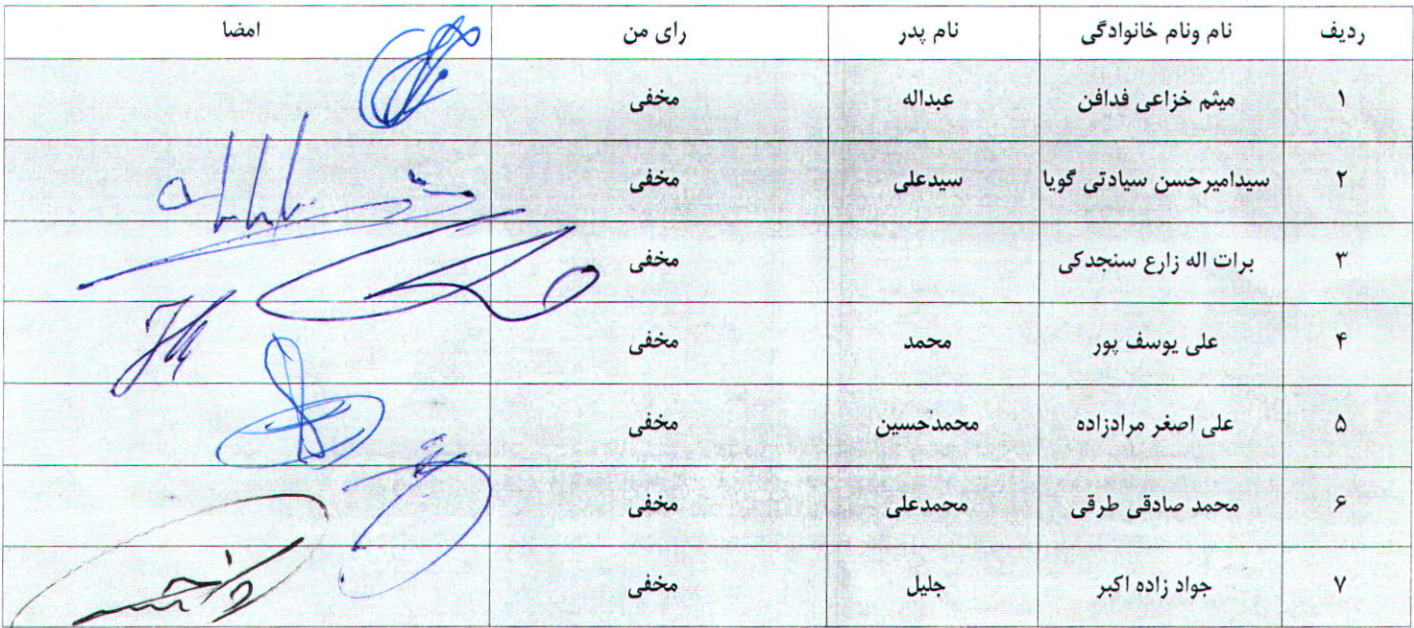 ردیف نام ونام خانوادگی نام پدر رای من امضا
۱ میثم خزاعی فدافن عبداله مخفی
۲ سیدامیرحسن سیادتی گویا سیدعلی مخفی
۳ برات اله زارع سنجدکی مخفی
۴ علی یوسف پور محمد مخفی
۵ علی اصغر مرادزاده محمدحسین مخفی
۶ محمد صادقی طرقی محمدعلی مخفی
۷ جواد زاده اکبر جلیل مخفی